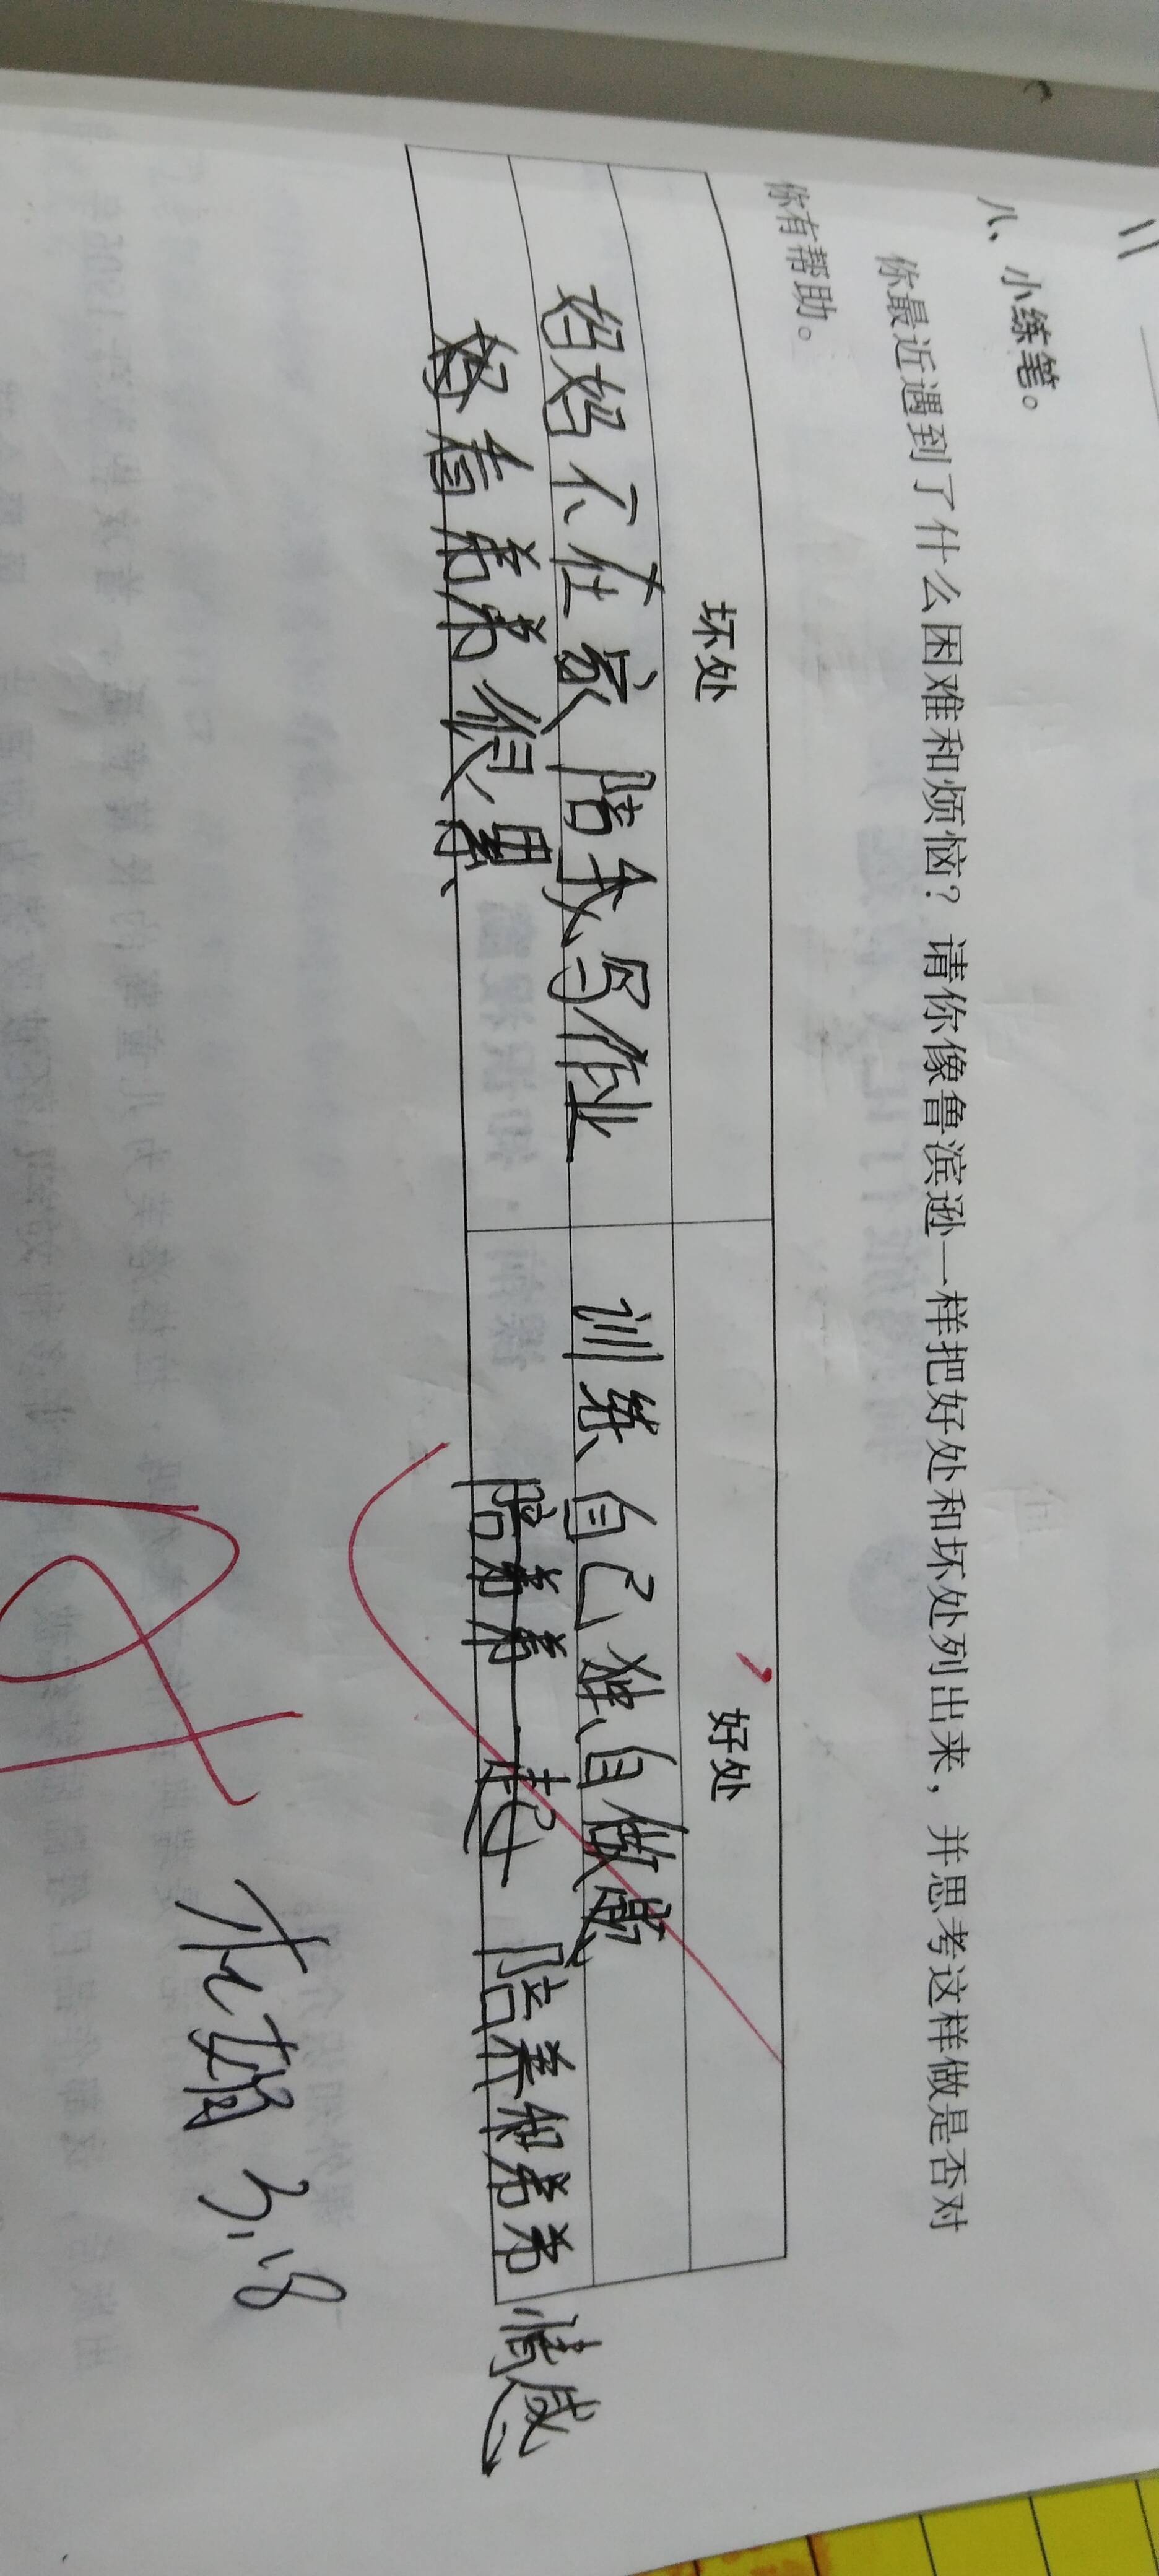 八、小练笔。
你最近遇到了什么困难和烦恼？请你像鲁滨逊一样把好处和坏处列出来，并思考这样做是否对
你有帮助。
坏处 好处
妈妈不在家陪我写作业 训练自己独自做
每看弟弟很累 陪弟弟一起 陪养和弟弟情感
A+
3.18